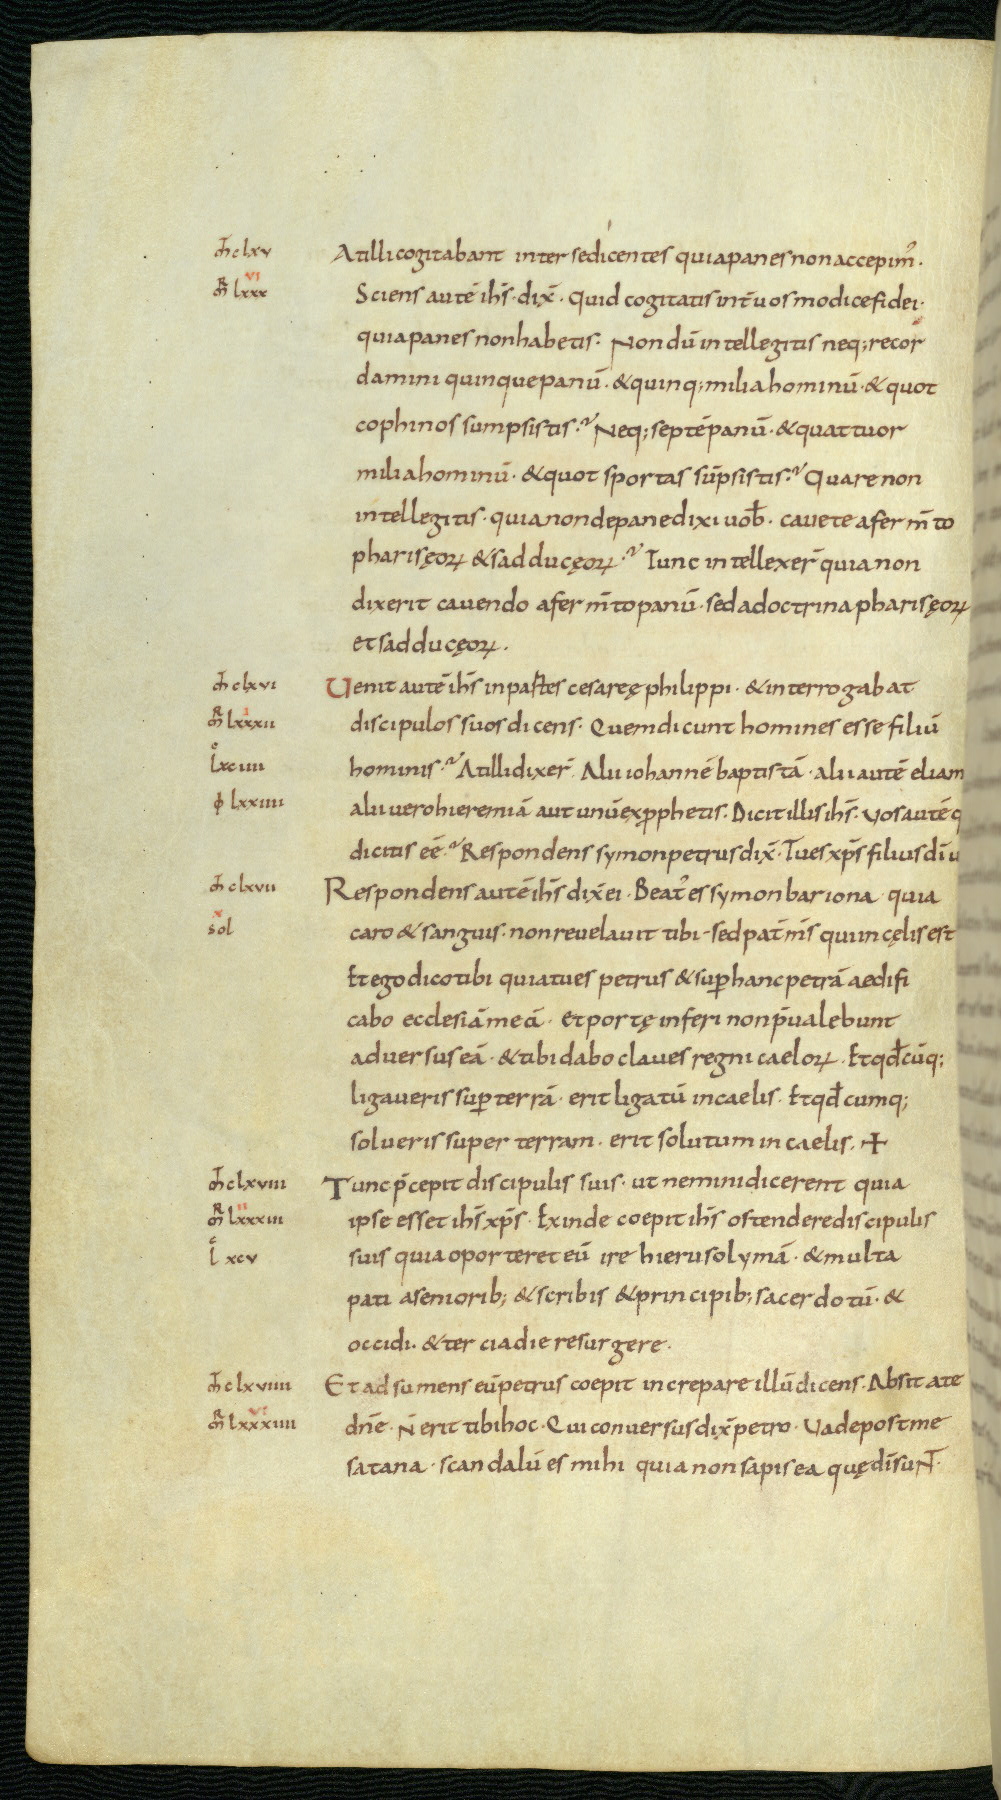 m̄ clxv Atilli cogitabant inter se dicentes quia panes non accepim᾽.
m̄R lxxx vi Sciens autē ih̄s · dix̄ · Quid cogitatis int̄ uos modice fidei ·
quia panes non habetis · Nondū intellegitis neq; recor
damini quinque panū · & quinq; milia hominū · & quot
cophinos sumpsistis · Neq; septē panū · & quattuor
milia hominū · & quot sportas sūpsistis · Quare non
intellegitis · quia non de pane dixi uob̄ · cauete a ferm̄to
pharisęoꝝ & sadducęoꝝ · Tunc intellexer̄ quia non
dixerit cauendo a ferm̄to panū · sed a doctrina pharisęoꝝ
et sadducęoꝝ .
m̄ clxvi Uenit autē ih̄s in partes cesaręe philippi · & interrogabat
m̄R lxxxii i discipulos suos dicens · Quem dicunt homines esse filiū
l xciiii hominis · At illi dixer̄ · Alii iohannē baptistā · alii autē eliam
φ lxxiiii alii uero hieremiā aut unū ex ꝓphetis · Dicit illis ih̄s · Vos autē q
dicitis eē · Respondens symon petrus dix̄ · Tu es xp̄s filius dī u
m̄ clxvii Respondens autē ih̄s dix̄ ei · Beat᾽ es symon bariona · quia
sol x caro & sanguis · non reuelauit tibi · sed pat̄ m̄s qui in cęlis est
Et ego dico tibi quia tu es petrus & sup̄ hanc petrā aedifi
cabo ecclesiā meā · Et portę inferi non p̄ualebunt
aduersus eā · & tibi dabo claues regni caeloꝝ · Et qd̄ cūq;
ligaueris sup̄ terrā · erit ligatū in caelis · Et qd̄ cumq;
solueris super terram · erit solutum in caelis · ✛
m̄ clxviii Tunc p̄cepit discipulis suis · ut nemini dicerent quia
m̄R lxxxiii ii ipse esset ih̄s xp̄s · Exinde coepit ih̄s ostendere discipulis
l xcv suis quia oporteret eū ire hierusolymā · & multa
pati a seniorib; & scribis & principib; sacerdotū · &
occidi · & tercia die resurgere ·
m̄ clxviiii Et adsumens eū petrus coepit increpare illū dicens · Absit a te
m̄R lxxxiiii vi dn̄e · N̄ erit tibi hoc · Qui conuersus dix̄ petro · Uade post me
satana · scandalū es mihi quia non sapis ea quę dī suNT ·